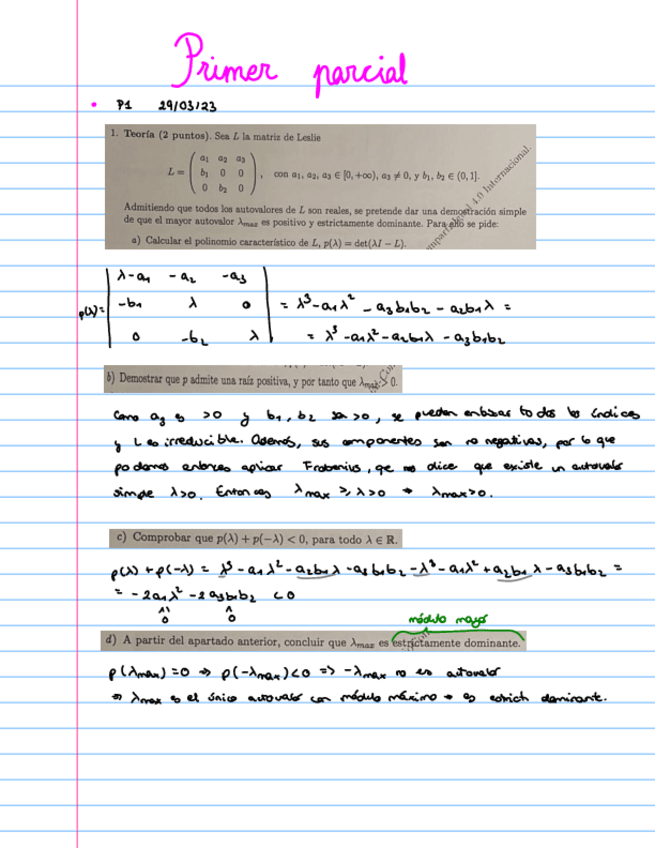 Primer parcial
• P1 29/03/23
1. Teoría (2 puntos). Sea L la matriz de Leslie
L = ( a₁ a₂ a₃
b₁ 0 0
0 b₂ 0 ), con a₁, a₂, a₃ ∈ [0, +∞), a₃ ≠ 0, y b₁, b₂ ∈ (0, 1].
Admitiendo que todos los autovalores de L son reales, se pretende dar una demostración simple
de que el mayor autovalor λmax es positivo y estrictamente dominante. Para ello se pide:
a) Calcular el polinomio característico de L, p(λ) = det(λI − L).
4.0 Internacional.
p(λ) = | λ-a₁ -a₂ -a₃
-b₁ λ 0
0 -b₂ λ | = λ³ - a₁λ² - a₃b₁b₂ - a₂b₁λ =
= λ³ - a₁λ² - a₂b₁λ - a₃b₁b₂
b) Demostrar que p admite una raíz positiva, y por tanto que λmax > 0.
Como a₃ es >0 y b₁, b₂ son >0, se pueden enlazar todos los índices
y L es irreducible. Además, sus componentes son no negativas, por lo que
podemos entonces aplicar Frobenius, que nos dice que existe un autovalor
simple λ>0. Entonces λmax ≥ λ>0 → λmax>0.
c) Comprobar que p(λ) + p(−λ) < 0, para todo λ ∈ ℝ.
p(λ) + p(-λ) = λ³ - a₁λ² - a₂b₁λ - a₃b₁b₂ - λ³ - a₁λ² + a₂b₁λ - a₃b₁b₂ =
= -2a₁λ² - 2a₃b₁b₂ < 0
0 0
módulo mayor
d) A partir del apartado anterior, concluir que λmax es estrictamente dominante.
p(λmax) = 0 ⇒ p(-λmax) < 0 ⇒ -λmax no es autovalor
⇒ λmax es el único autovalor con módulo máximo → es estrich dominante.